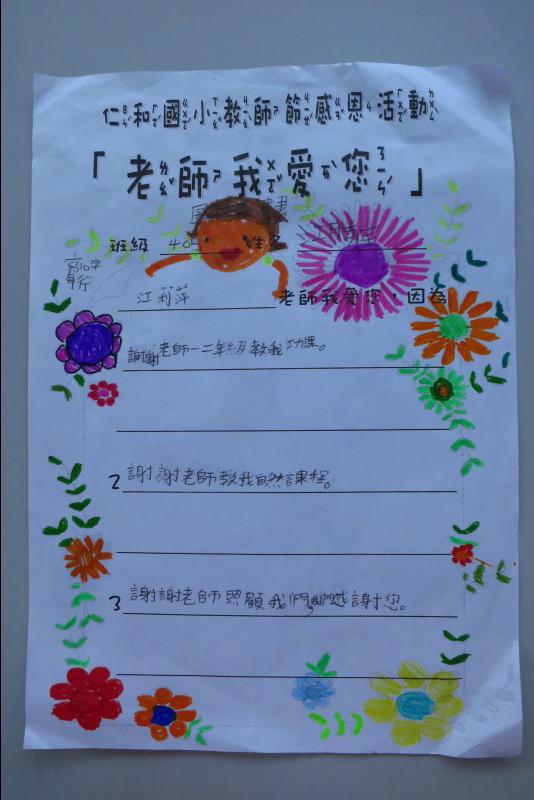 仁和國小教師節感恩活動
「老師我愛您」
班級 405 姓名
江莉萍 老師我愛您,因為
謝謝老師一二年級教我功課。
2 謝謝老師教我自然課程。
3 謝謝老師照顧我們,我們感謝您。